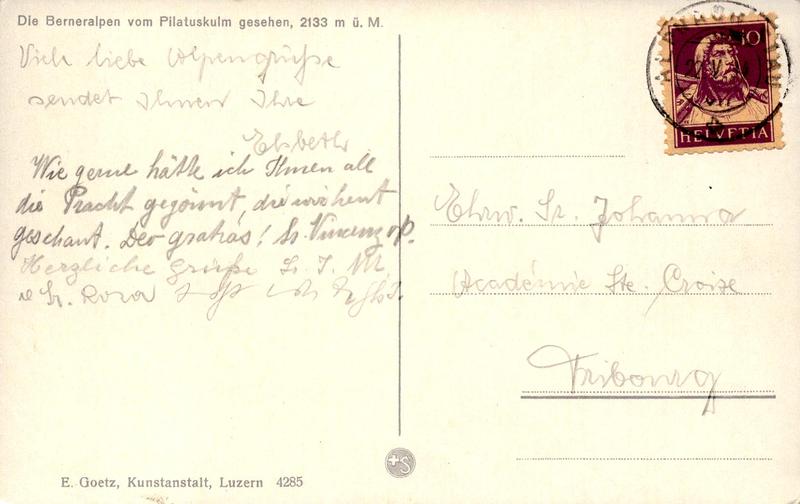 Die Berneralpen vom Pilatuskulm gesehen, 2133 m ü. M.
Viele liebe Alpengrüsse
sendet Ihnen Ihre
Elsbeth
Wie gerne hätte ich Ihnen all
die Pracht gegönnt, die wir heut
geschaut. Deo gratias! Sr. Vincenz
Herzliche Grüße Sr.
Sr. Rosa
10
HELVETIA
Ehrw. Sr. Johanna
Académie Ste. Croixe
Fribourg
+S
E. Goetz, Kunstanstalt, Luzern 4285